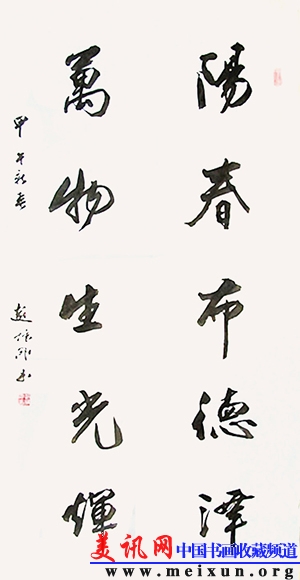 陽春布德澤
萬物生光輝
甲午新春
美讯网 中国书画收藏频道
www.meixun.org